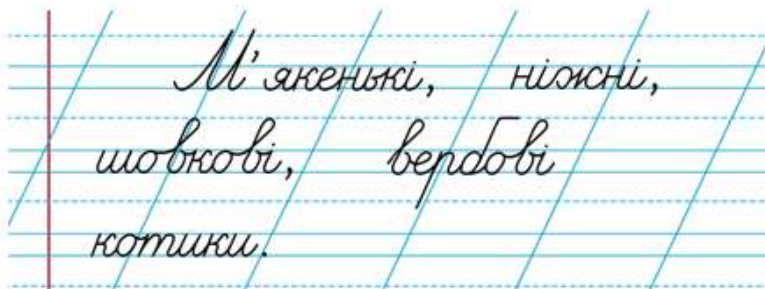 М'якенькі, ніжні,
шовкові, вербові
котики.